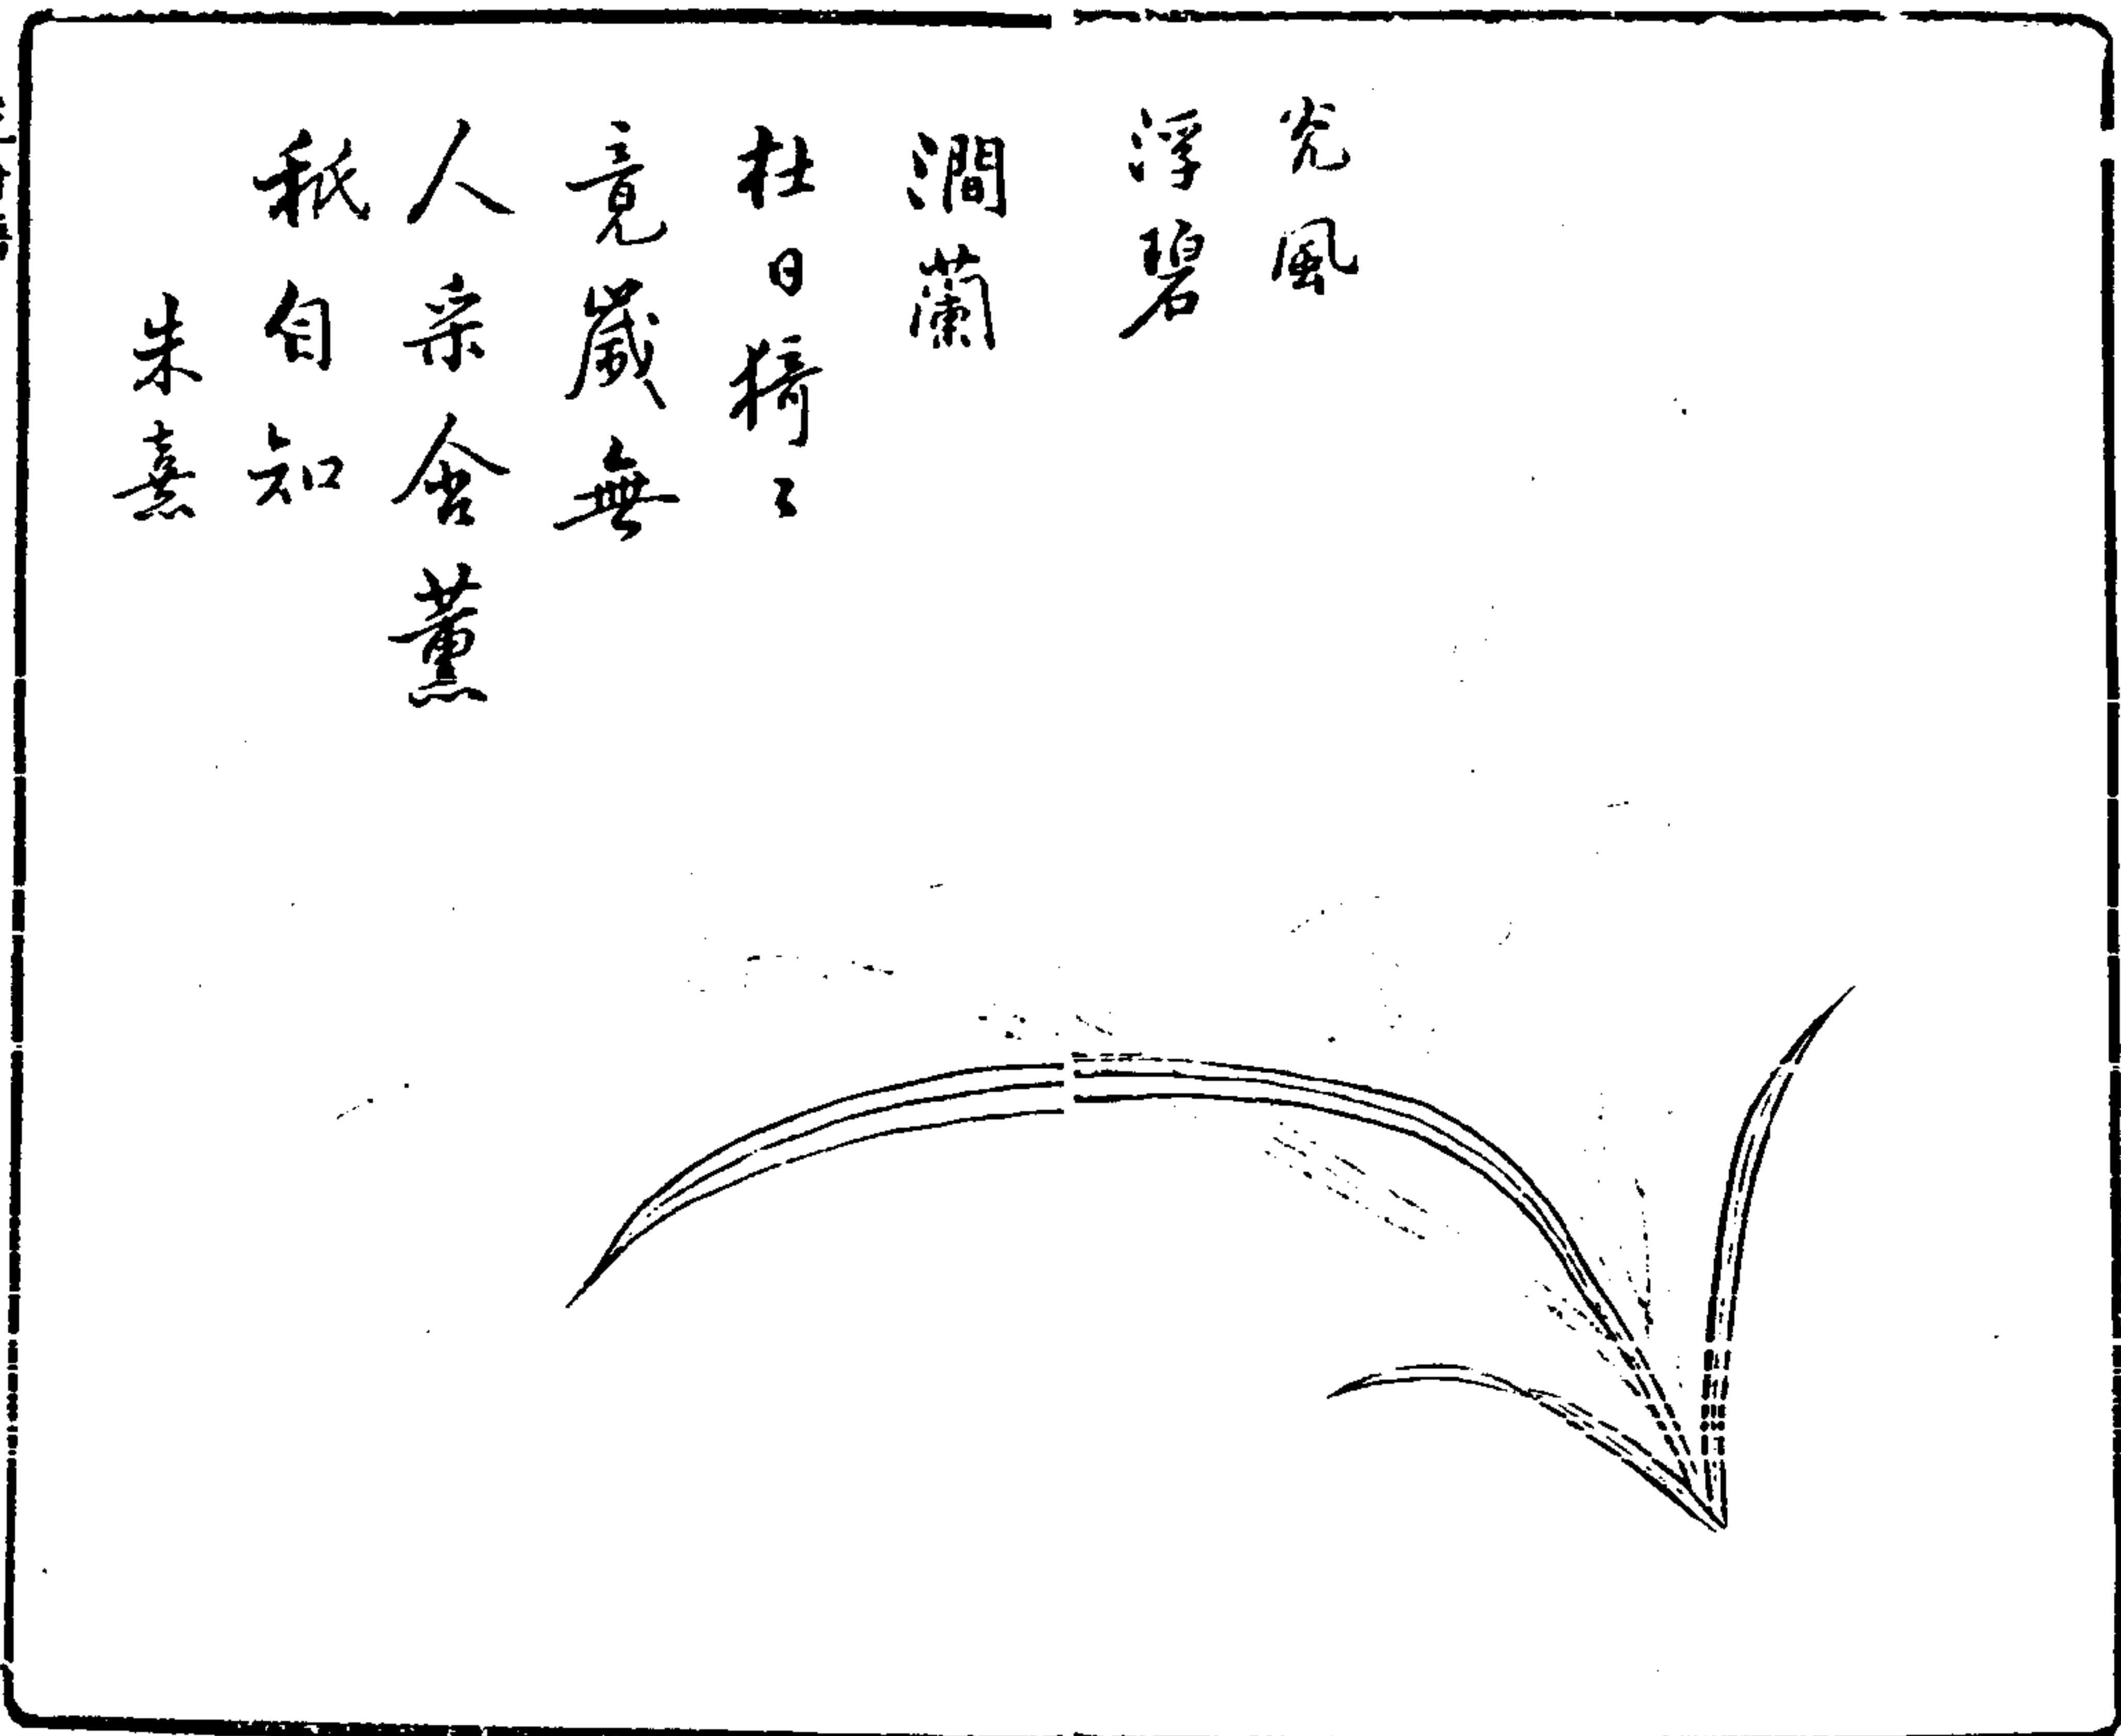 光風
浮碧
澗蘭
杜日猗〻
竟歲無
人采含薰
秪自知
朱熹